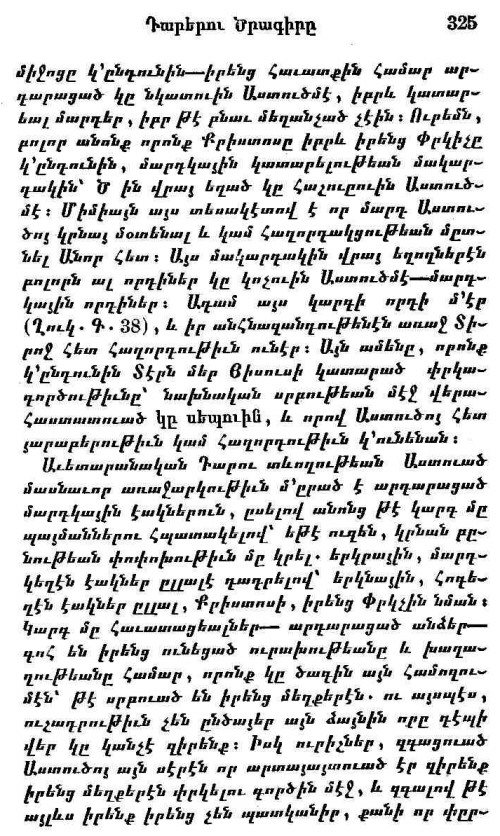 Դարերու Ծրագիրը 325
միջոցը կ՚ընդունին—իրենց հաւատքին համար ար-
դարացած կը նկատուին Աստուծմէ, իբրև կատար-
եալ մարդեր, իբր թէ բնաւ մեղանչած չէին։ Ուրեմն,
բոլոր անոնք որոնք Քրիստոսը իբրև իրենց Փրկիչը
կ՚ընդունին, մարդկային կատարելութեան մակար-
դակին՝ Ծ ին վրայ եղած կը հաշուըուին Աստուծ-
մէ։ Միմիայն այս տեսակէտով է որ մարդ Աստու-
ծոյ կրնայ մօտենալ և կամ հաղորդակցութեան մըտ-
նել Անոր հետ։ Այս մակարդակին վրայ եղողներէն
բոլորն ալ որդիներ կը կոչուին Աստուծմէ—մարդ-
կային որդիներ։ Ադամ այս կարգի որդի մ՚էր
(Ղուկ. Գ. 38), և իր անհնազանդութենէն առաջ Տի-
րոջ հետ հաղորդութիւն ունէր։ Այն ամենը, որոնք
կ՚ընդունին Տէրն մեր Յիսուսի կատարած փրկա-
գործութիւնը՝ նախնական սրբութեան մէջ վերա-
հաստատուած կը սեպուին, և որով Աստուծոյ հետ
յարաբերութիւն կամ հաղորդութիւն կ՚ունենան։
Աւետարանական Դարու տևողութեան Աստուած
մասնաւոր առաջարկութիւն մ՚ըրած է արդարացած
մարդկային էակներուն, ըսելով անոնց թէ կարգ մը
պայմաններու հպատակելով՝ եթէ ուզեն, կրնան բը-
նութեան փոփոխութիւն մը կրել. երկրային, մարդ-
կեղէն էակներ ըլլալէ դադրելով՝ երկնային, հոգե-
ղէն էակներ ըլլալ, Քրիստոսի, իրենց Փրկչին նման։
Կարգ մը հաւատացեալներ— արդարացած անձեր—
գոհ են իրենց ունեցած ուրախութեանը և խաղա-
ղութեանը համար, որոնք կը ծագին այն համոզու-
մէն՝ թէ սրբուած են իրենց մեղքերէն. ու այսպէս,
ուշադրութիւն չեն ընծայեր այն ձայնին որը դէպի
վեր կը կանչէ զիրենք։ Իսկ ուրիշներ, զգացուած
Աստուծոյ այն սէրէն որ արտայայտուած էր զիրենք
իրենց մեղքերէն փրկելու գործին մէջ, և զգալով թէ
այլևս իրենք իրենց չեն պատկանիր, քանի որ փըր-